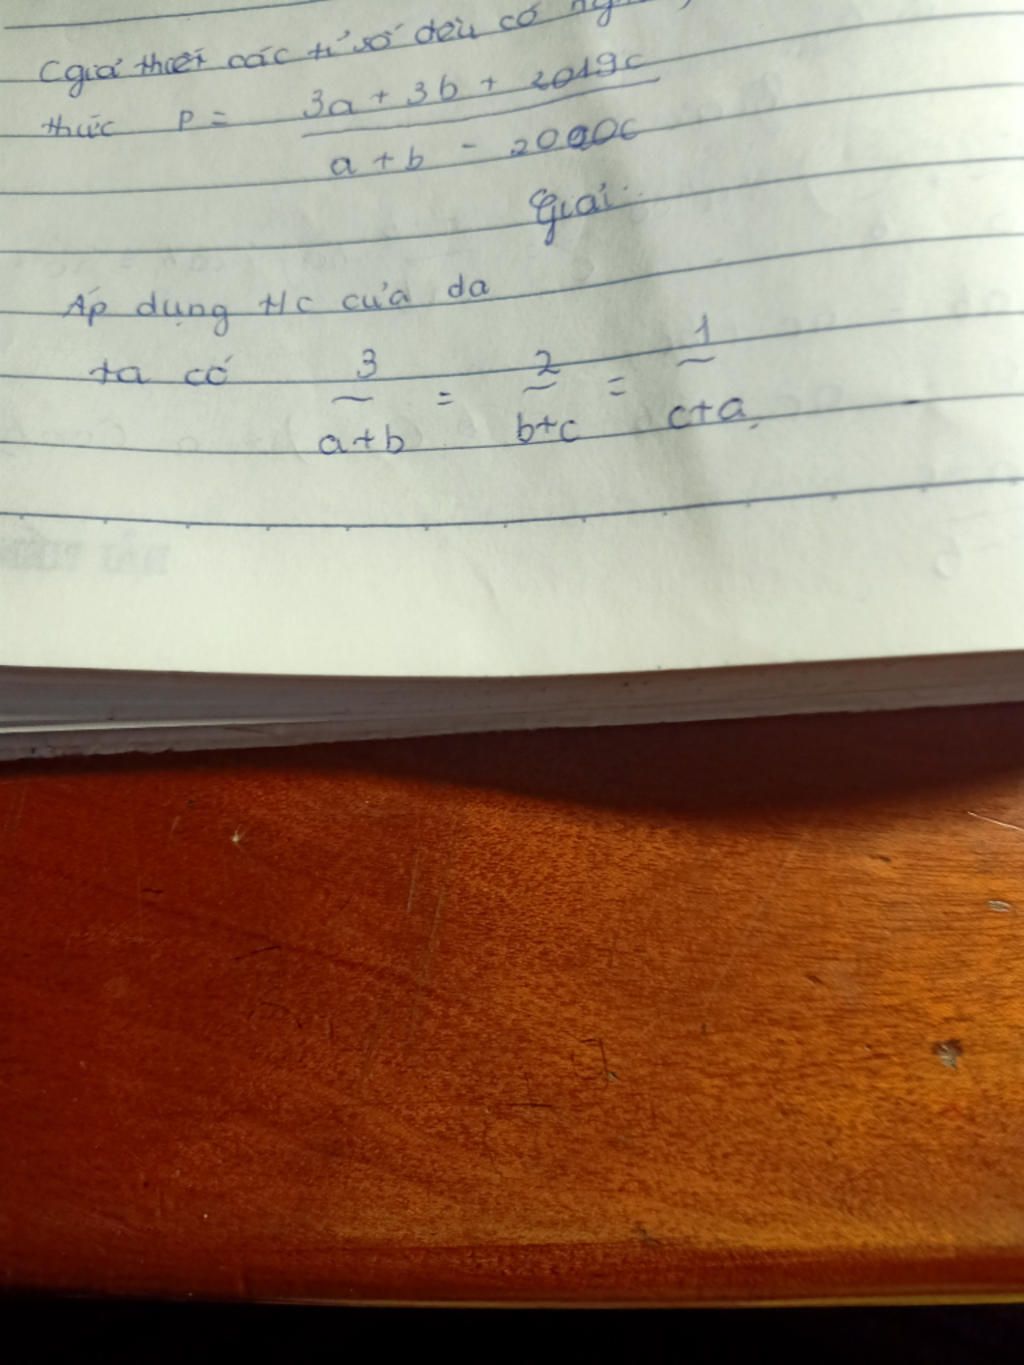 (giả thiết các tỉ số đều có
thức P = 3a + 3b + 2019c
a + b - 2020c
Giải
Áp dụng t/c của da
ta có 3 = 2 = 1
a+b b+c c+a